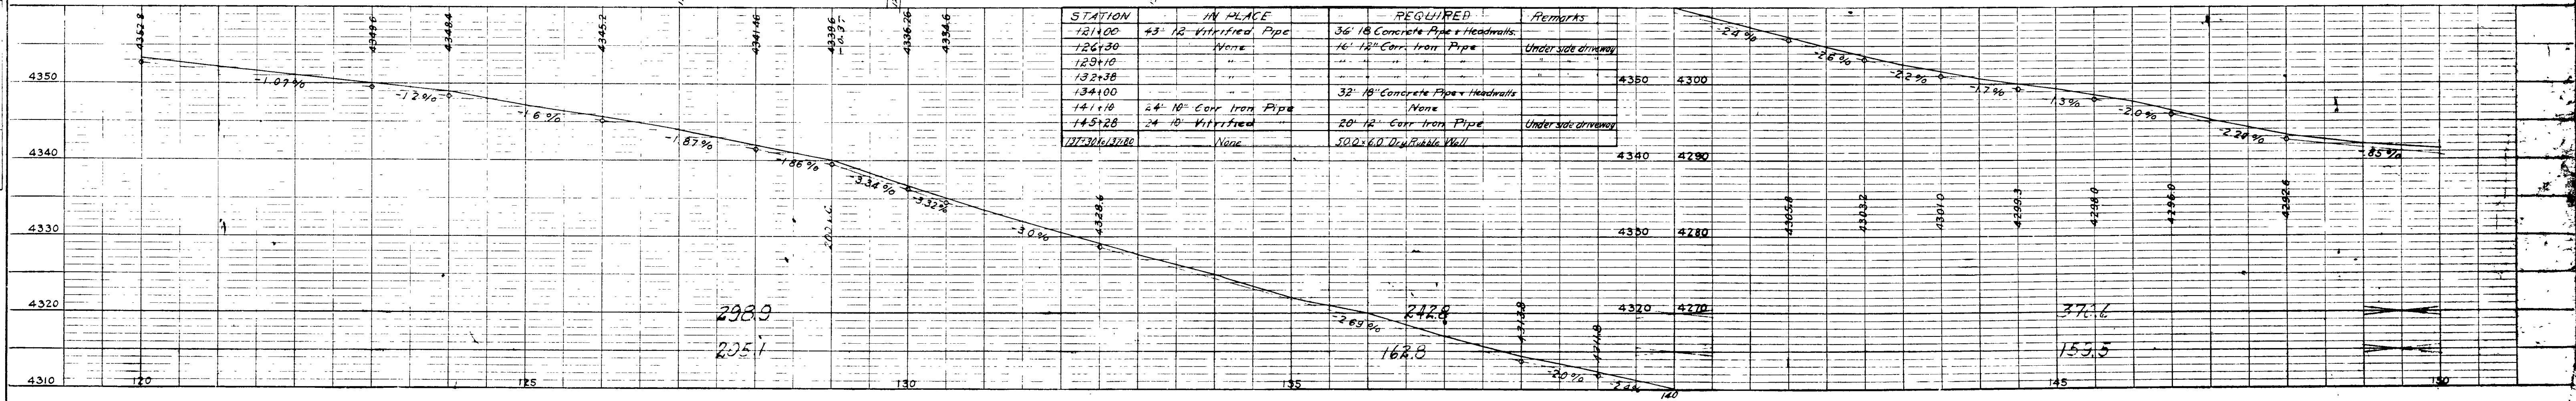 4352.8
4349.6
4348.4
4345.2
4341.46
4339.6
-0.37
4336.26
4334.6
STATION IN PLACE REQUIRED Remarks
121+00 43' 12" Vitrified Pipe 36' 18" Concrete Pipe & Headwalls.
126+30 None 16' 12" Corr. Iron Pipe Under side driveway
129+10 " " " " " " "
132+38 " " " " " "
134+00 " 32' 18" Concrete Pipe & Headwalls
141+10 24' 10" Corr Iron Pipe None
145+28 24' 10" Vitrified " 20' 12" Corr Iron Pipe Under side driveway
137+30 to 137+80 None 50.0 x 6.0 Dry Rubble Wall
4350
-1.07%
-1.2%
-1.6%
-1.87%
-1.86%
-3.34%
-3.32%
-3.0%
-2.69%
-2.0%
-2.4%
4340
4330
4320
4310
200 V.C.
4328.6
4313.8
4311.8
298.9
205.1
242.8
162.8
120
125
130
135
140
4350 4300
4340 4290
4330 4280
4320 4270
-2.4%
-2.6%
-2.2%
-1.7%
-1.3%
-2.0%
-2.29%
-.85%
4305.8
4303.2
4301.0
4299.3
4298.0
4296.0
4292.6
155.5
145
150